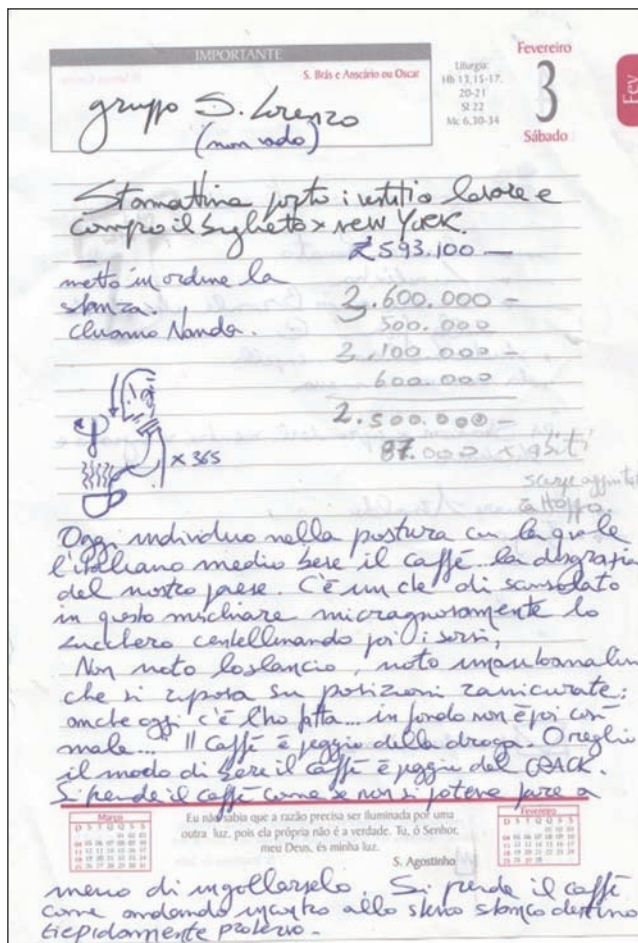 IMPORTANTE
S. Brás e Anscário ou Oscar
grupo S. Lorenzo
(non vado)
Liturgia:
Hb 13,15-17.
20-21
Sl 22
Mc 6,30-34
Fevereiro
3
Sábado
Fev
Stamattina porto i vestiti a lavare e
compro il biglietto x NEW YORK.
593.100 —
metto in ordine la
stanza.
chiamo Nanda.
3.600.000 —
500.000
3.100.000 —
600.000
2.500.000 —
87.000 x
x 365
scarpe
Oggi individuo nella postura con la quale
l'italiano medio beve il caffè la disgrazia
del nostro paese. C'è un che di sconsolato
in questo mischiare micragnosamente lo
zucchero centellinando poi i sorsi,
Non noto lo slancio, noto
che si riposa su posizioni
anche oggi c'è l'ho fatta... in fondo non è poi così
male... Il caffè è peggio della droga. O meglio
il modo di bere il caffè è peggio del CRACK.
Si prende il caffè come se non si poteva fare a
Março
D S T Q Q S S
Eu não sabia que a razão precisa ser iluminada por uma
outra luz, pois ela própria não é a verdade. Tu, ó Senhor,
meu Deus, és minha luz.
S. Agostinho
Fevereiro
D S T Q Q S S
meno di ingollarselo. Si prende il caffè
come andando incontro allo stesso stanco destino
tiepidamente